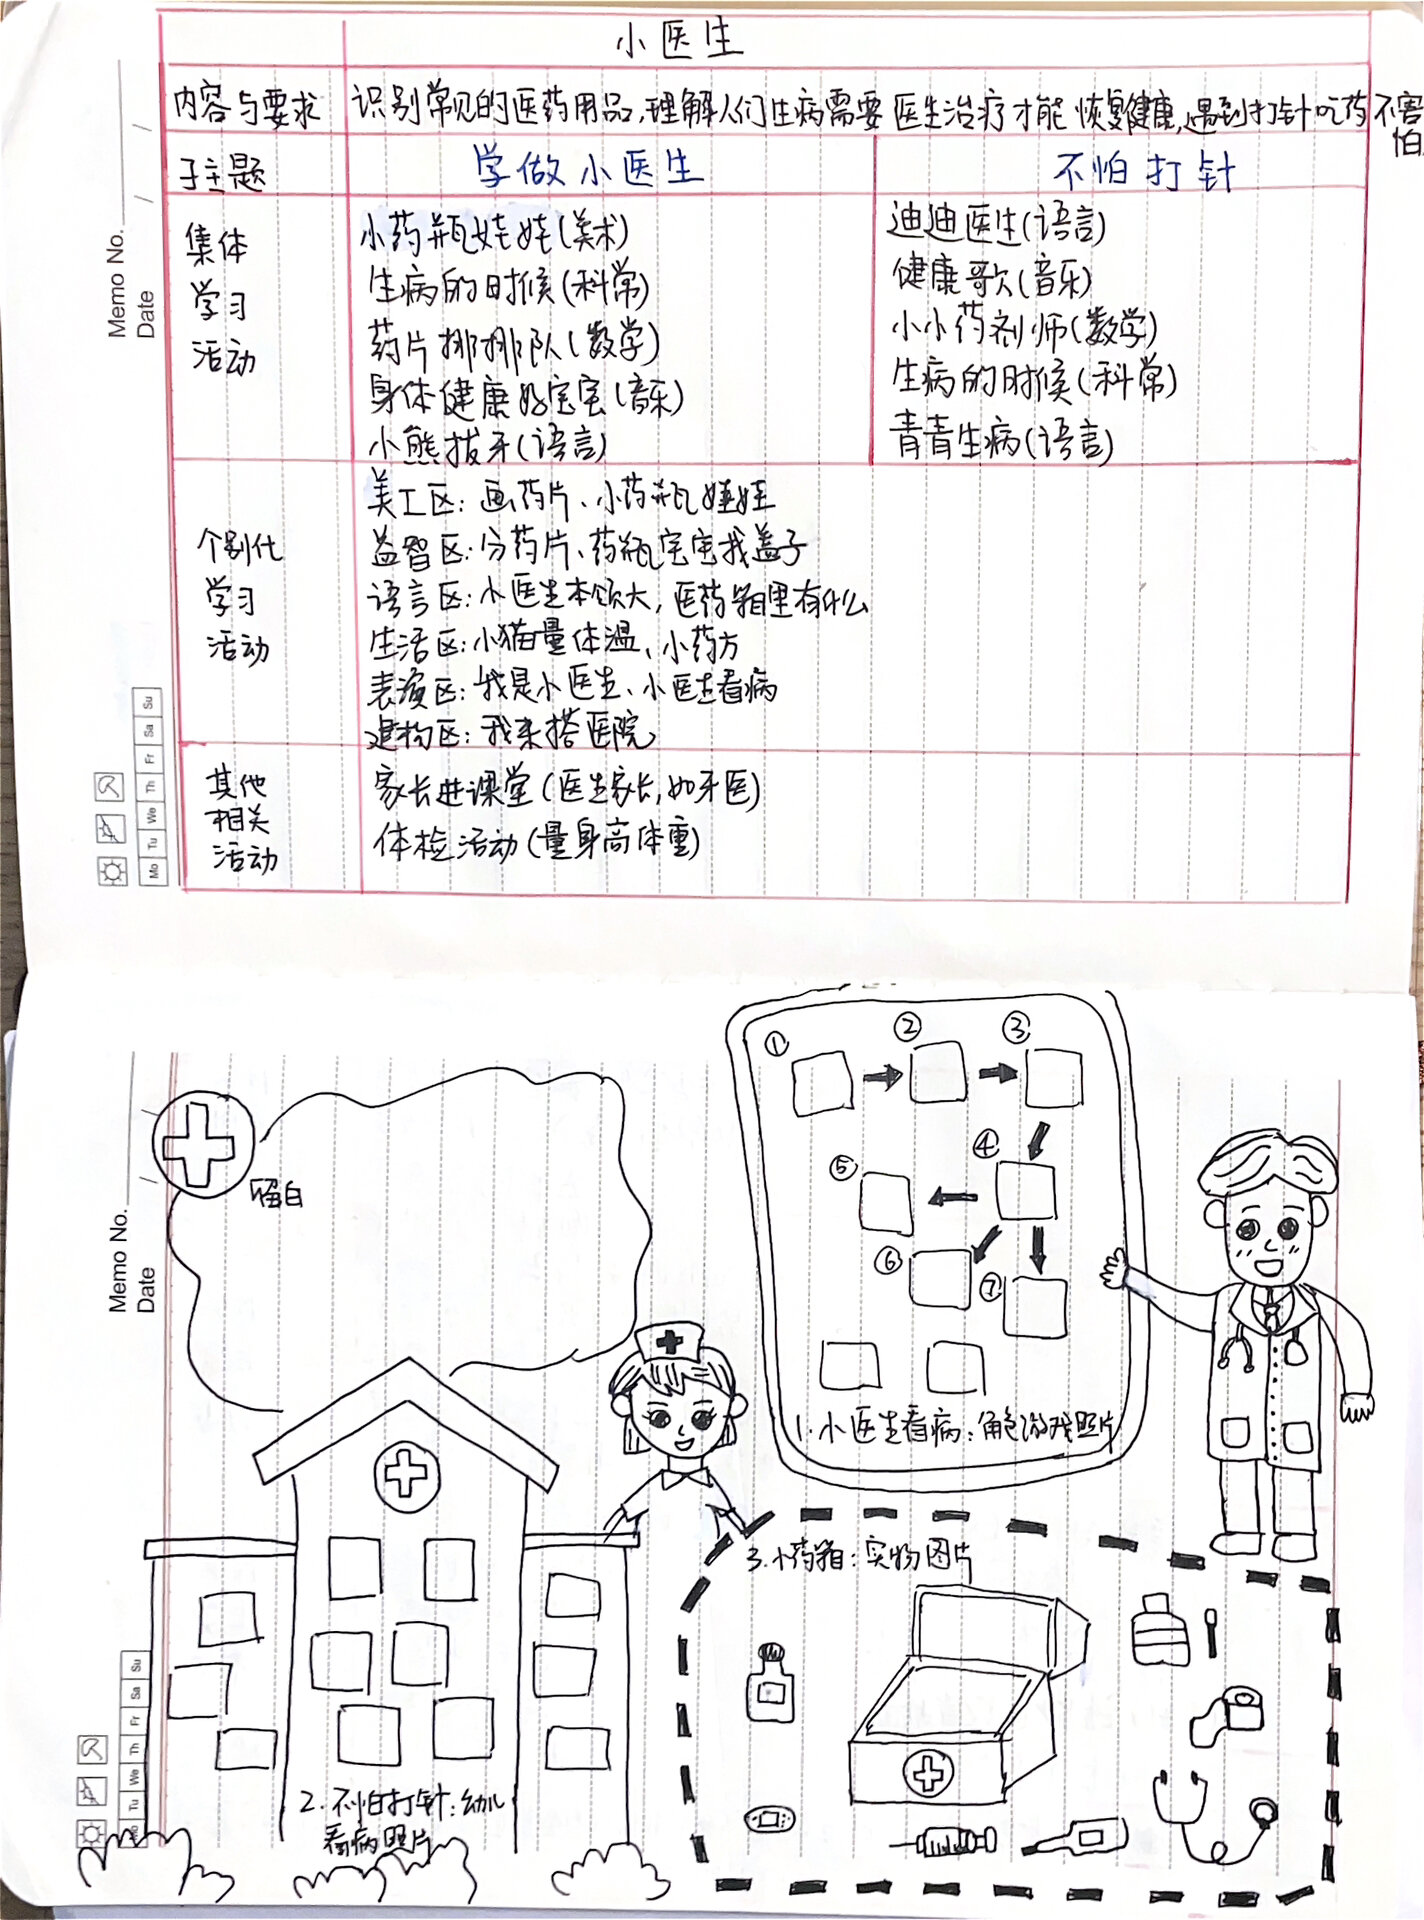 小医生
内容与要求 识别常见的医药用品,理解人们生病需要医生治疗才能恢复健康,遇到打针吃药不害怕
子主题 学做小医生 不怕打针
集体学习活动
小药瓶娃娃(美术)
生病的时候(科常)
药片排排队(数学)
身体健康好宝宝(音乐)
小熊拔牙(语言)
迪迪医生(语言)
健康歌(音乐)
小小药剂师(数学)
生病的时候(科常)
青青生病(语言)
个别化学习活动
美工区:画药片、小药瓶娃娃
益智区:分药片、药瓶宝宝找盖子
语言区:小医生本领大,医药箱里有什么
生活区:小猫量体温、小药方
表演区:我是小医生、小医生看病
建构区:我来搭医院
其他相关活动
家长进课堂(医生家长,如牙医)
体检活动(量身高体重)
Memo No.
Date
Mo Tu We Th Fr Sa Su
① ② ③
④
⑤
⑥
⑦
留白
1.小医生看病:角色游戏照片
3.小药箱:实物图片
2.不怕打针:幼儿
看病照片
Memo No.
Date
Mo Tu We Th Fr Sa Su